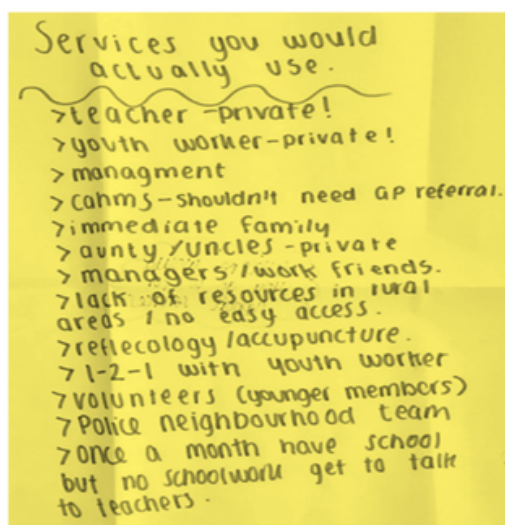 Services you would
actually use.
>teacher -private!
>youth worker-private!
>managment
>cahms-shouldn't need GP referral.
>immediate family
>aunty/uncles-private
>managers/work friends.
>lack of resources in rural
areas / no easy access.
>reflecology/accupuncture.
>1-2-1 with youth worker
>volunteers (younger members)
>Police neighbourhood team
>once a month have school
but no schoolwork get to talk
to teachers.